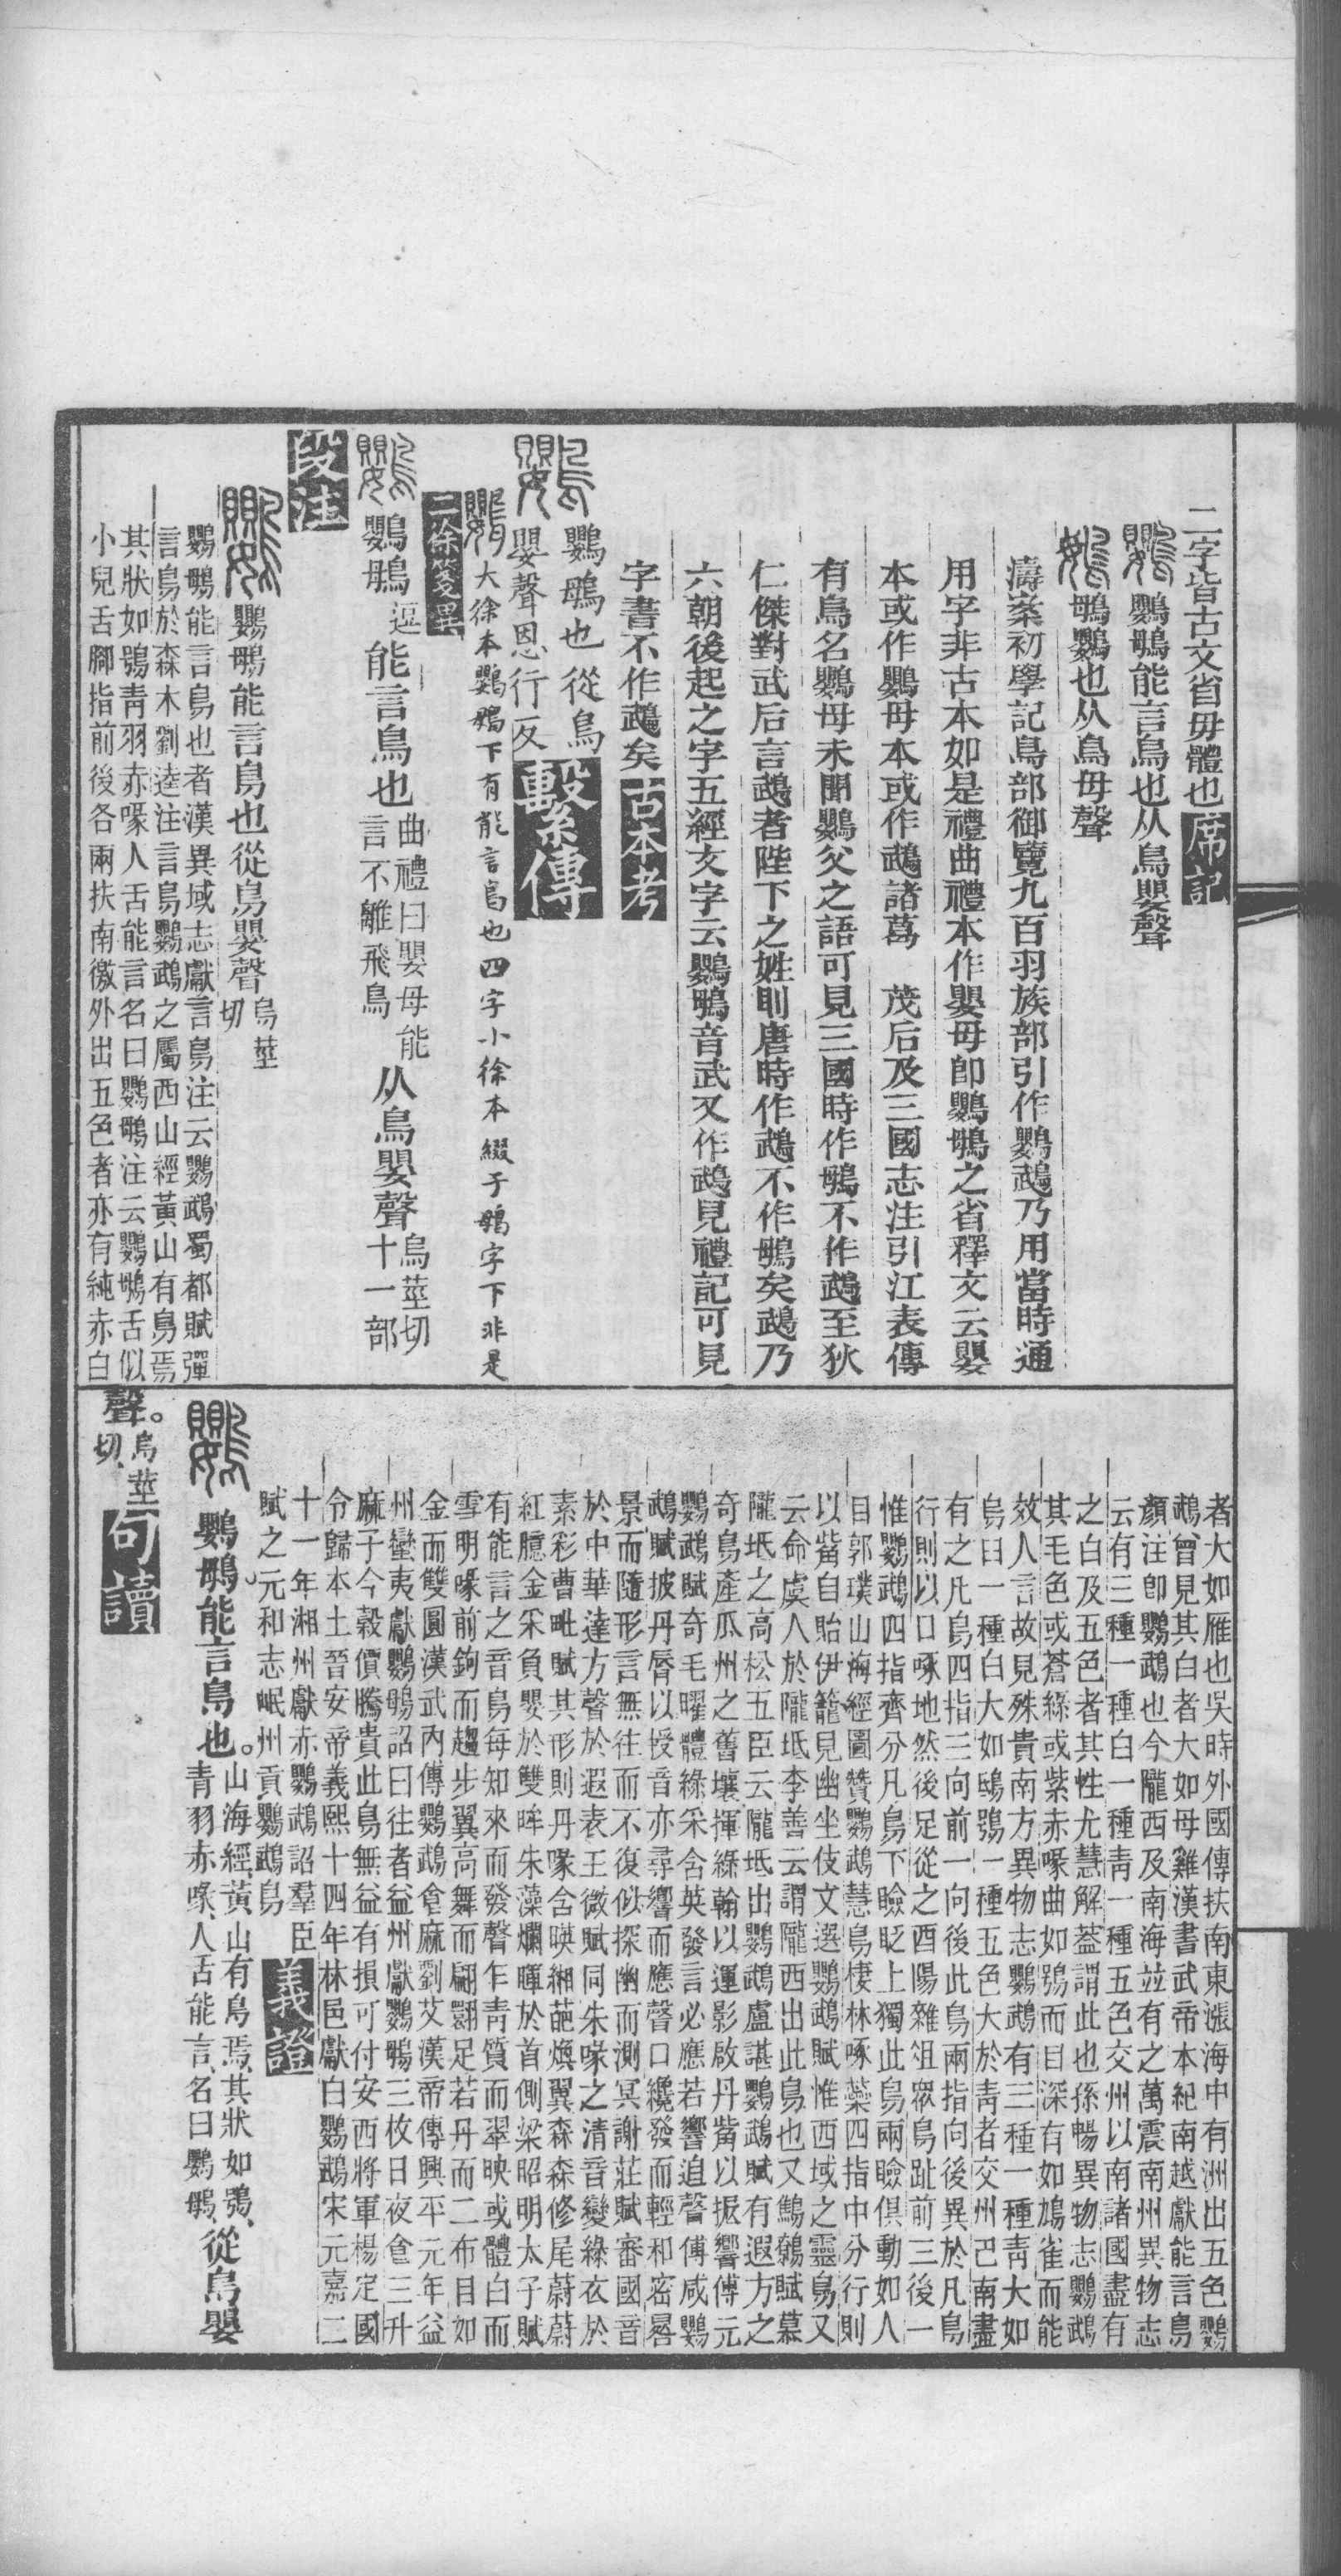 二字皆古文省毋體也席記
鸚鴟能言鳥也从鳥嬰聲
鴟鸚也从鳥毋聲
濤案初學記鳥部御覽九百羽族部引作鸚鵡乃用當時通
用字非古本如是禮曲禮本作嬰母卽鸚鴟之省釋文云嬰
本或作鸚母本或作鵡諸葛　茂后及三國志注引江表傳
有鳥名鸚母未聞鸚父之語可見三國時作鴟不作鵡至狄
仁傑對武后言鵡者陛下之姓則唐時作鵡不作鴟矣鵡乃
六朝後起之字五經文字云鸚鴟音武又作鵡見禮記可見
字書不作鵡矣古本考
鸚鴟也從鳥
嬰聲恩行反繫傳
大徐本鸚鴟下有能言鳥也四字小徐本綴于鴟字下非是
二徐箋異
鸚鴟逗能言鳥也曲禮曰嬰母能
言不離飛鳥从鳥嬰聲烏莖切
十一部
段注
鸚鴟能言鳥也從鳥嬰聲烏莖
切
鸚鴟能言鳥也者漢異域志獻言鳥注云鸚鵡蜀都賦彈
言鳥於森木劉逵注言鳥鸚鵡之屬西山經黃山有鳥焉
其狀如鴞青羽赤喙人舌能言名曰鸚鴟注云鸚鴟舌似
小兒舌腳指前後各兩扶南徼外出五色者亦有純赤白
者大如雁也吳時外國傳扶南東漲海中有洲出五色鸚
鵡曾見其白者大如母雞漢書武帝本紀南越獻能言鳥
顏注卽鸚鵡也今隴西及南海並有之萬震南州異物志
云有三種一種白一種青一種五色交州以南諸國盡有
之白及五色者其性尤慧解蓋謂此也孫暢異物志鸚鵡
其毛色或蒼綠或紫赤喙曲如鴞而目深有如鳩雀而能
效人言故見殊貴南方異物志鸚鵡有三種一種青大如
烏臼一種白大如鴟鴞一種五色大於青者交州巴南盡
有之凡鳥四指三向前一向後此鳥兩指向後異於凡鳥
行則以口啄地然後足從之酉陽雜俎眾鳥趾前三後一
惟鸚鵡四指齊分凡鳥下瞼眨上獨此鳥兩瞼俱動如人
目郭璞山海經圖贊鸚鵡慧鳥棲林啄蘂四指中分行則
以觜自貽伊籠見幽坐伎文選鸚鵡賦惟西域之靈鳥又
云命虞人於隴坻李善云謂隴西出此鳥也又鷦鷯賦慕
隴坻之高松五臣云隴坻出鸚鵡盧諶鸚鵡賦有遐方之
奇鳥產瓜州之舊壤揮綠翰以運影啟丹觜以振響傅元
鸚鵡賦奇毛曜體綠采含英發言必應若響追聲傅咸鸚
鵡賦披丹脣以授音亦尋響而應聲口纔發而輕和密晷
景而隨形言無往而不復似探幽而測冥謝莊賦審國音
於中華達方聲於遐表王微賦同朱喙之清音變綠衣於
素彩曹毗賦其形則丹喙含暎緗葩煥翼森森修尾蔚蔚
紅臆金采負嬰於雙眸朱藻爛暉於首側梁昭明太子賦
有能言之奇鳥每知來而發聲乍青質而翠映或體白而
雪明喙前鉤而趨步翼高舞而翩翾足若丹而二布目如
金而雙圓漢武內傳鸚鵡食麻劉艾漢帝傳興平元年益
州蠻夷獻鸚鴟詔曰往者益州獻鸚鴟三枚日夜食三升
麻子今穀價騰貴此鳥無益有損可付安西將軍楊定國
令歸本土晉安帝義熙十四年林邑獻白鸚鵡宋元嘉二
十一年湘州獻赤鸚鵡詔羣臣
賦之元和志岷州貢鸚鵡鳥義證
鸚鴟、能言鳥也。山海經、黃山有鳥焉、其狀如鴞、
青羽赤喙、人舌能言、名曰鸚鴟、從鳥嬰
聲。烏莖
切、句讀